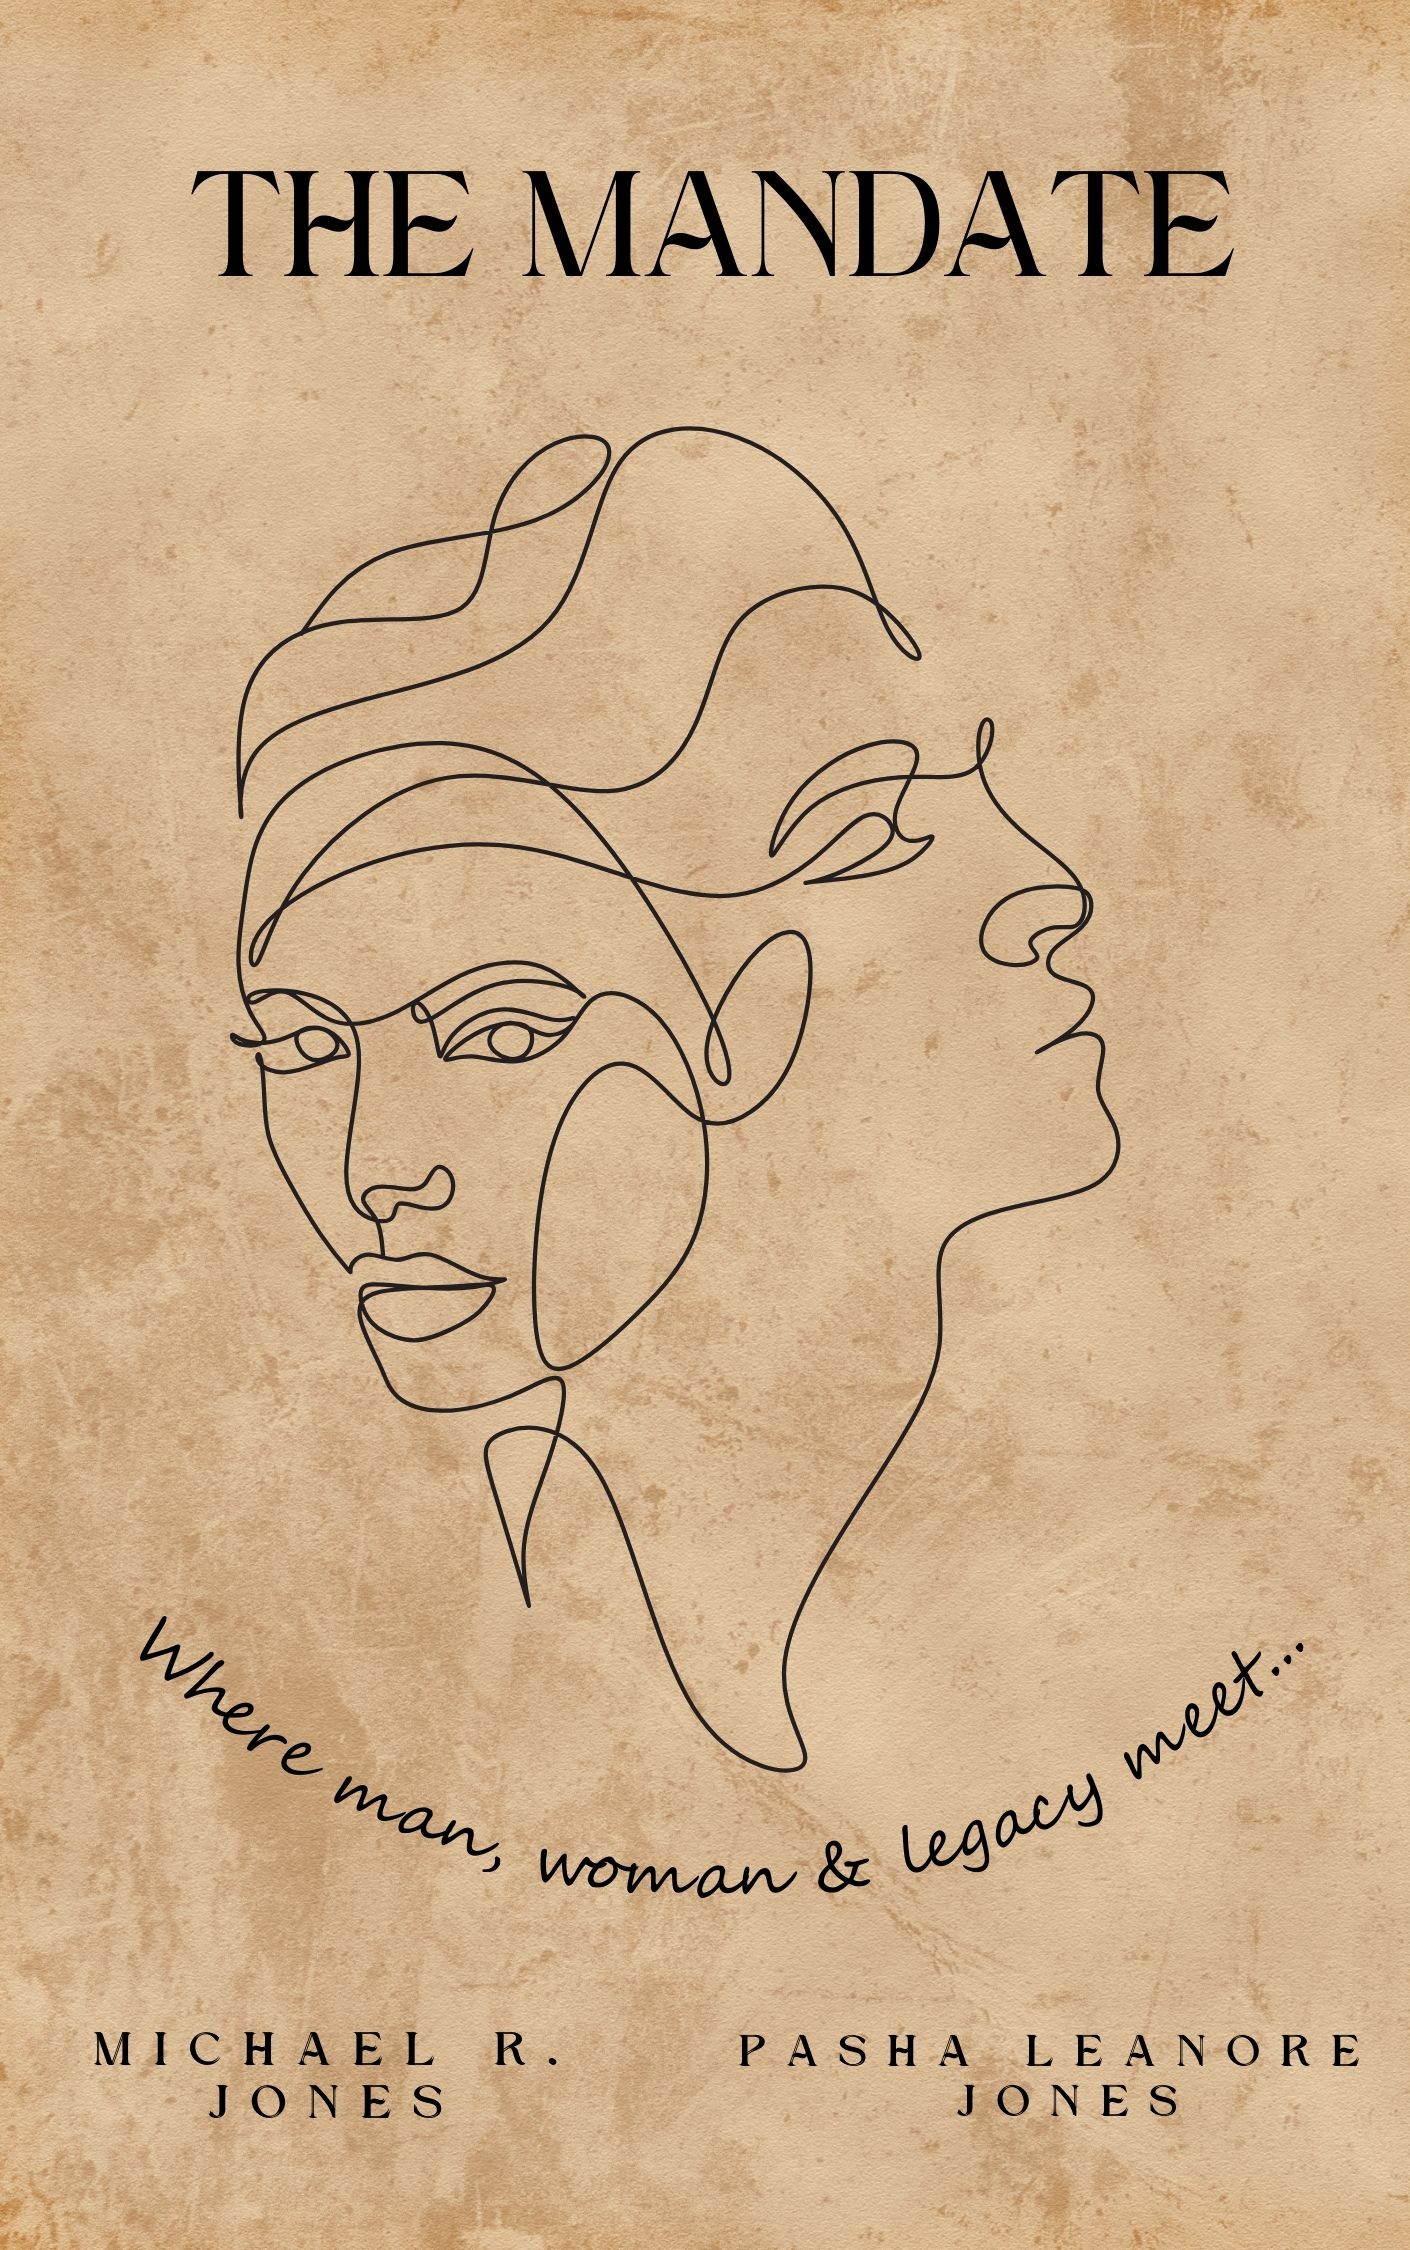 THE MANDATE
Where man, woman & legacy meet...
MICHAEL R.
JONES
PASHA LEANORE
JONES